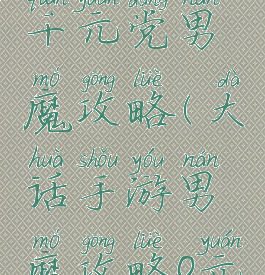 quán yuán dǎng nán
千元党男
mó gōng lüè dà
魔攻略(大
huà shǒu yóu nán
话手游男
mó gōng lüè yuán
魔攻略0元